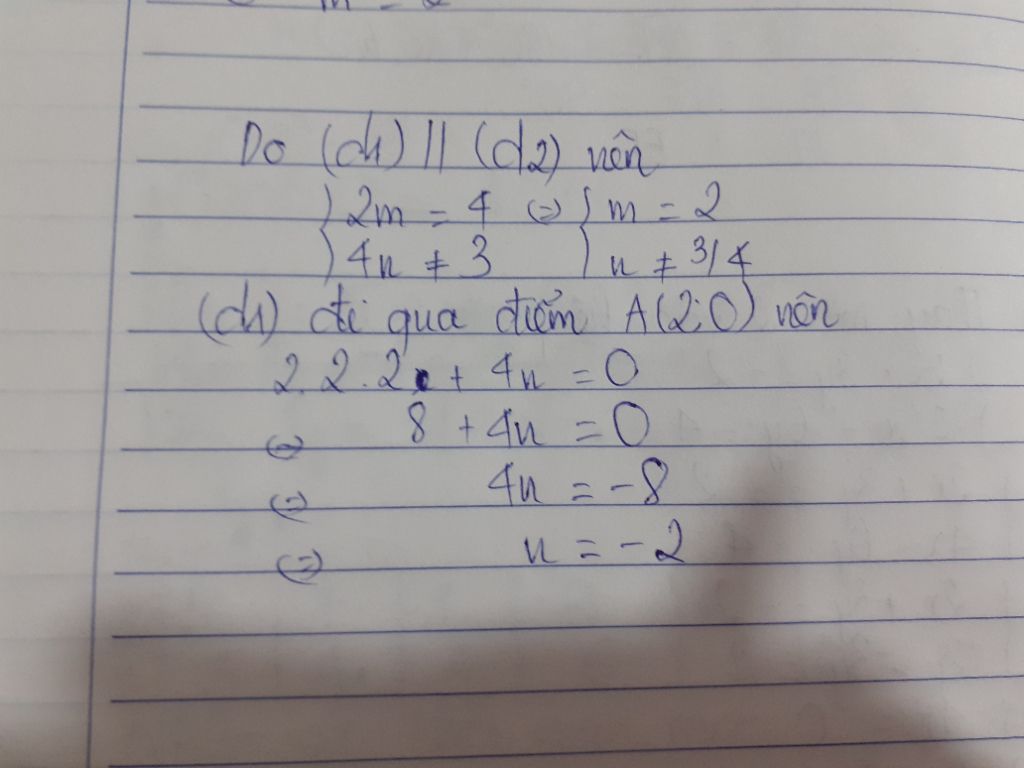 Do (d1) // (d2) nên
{ 2m = 4 <=> { m = 2
{ 4n ≠ 3 { n ≠ 3/4
(d1) đi qua điểm A(2;0) nên
2.2.2 + 4n = 0
<=> 8 + 4n = 0
<=> 4n = -8
<=> n = -2